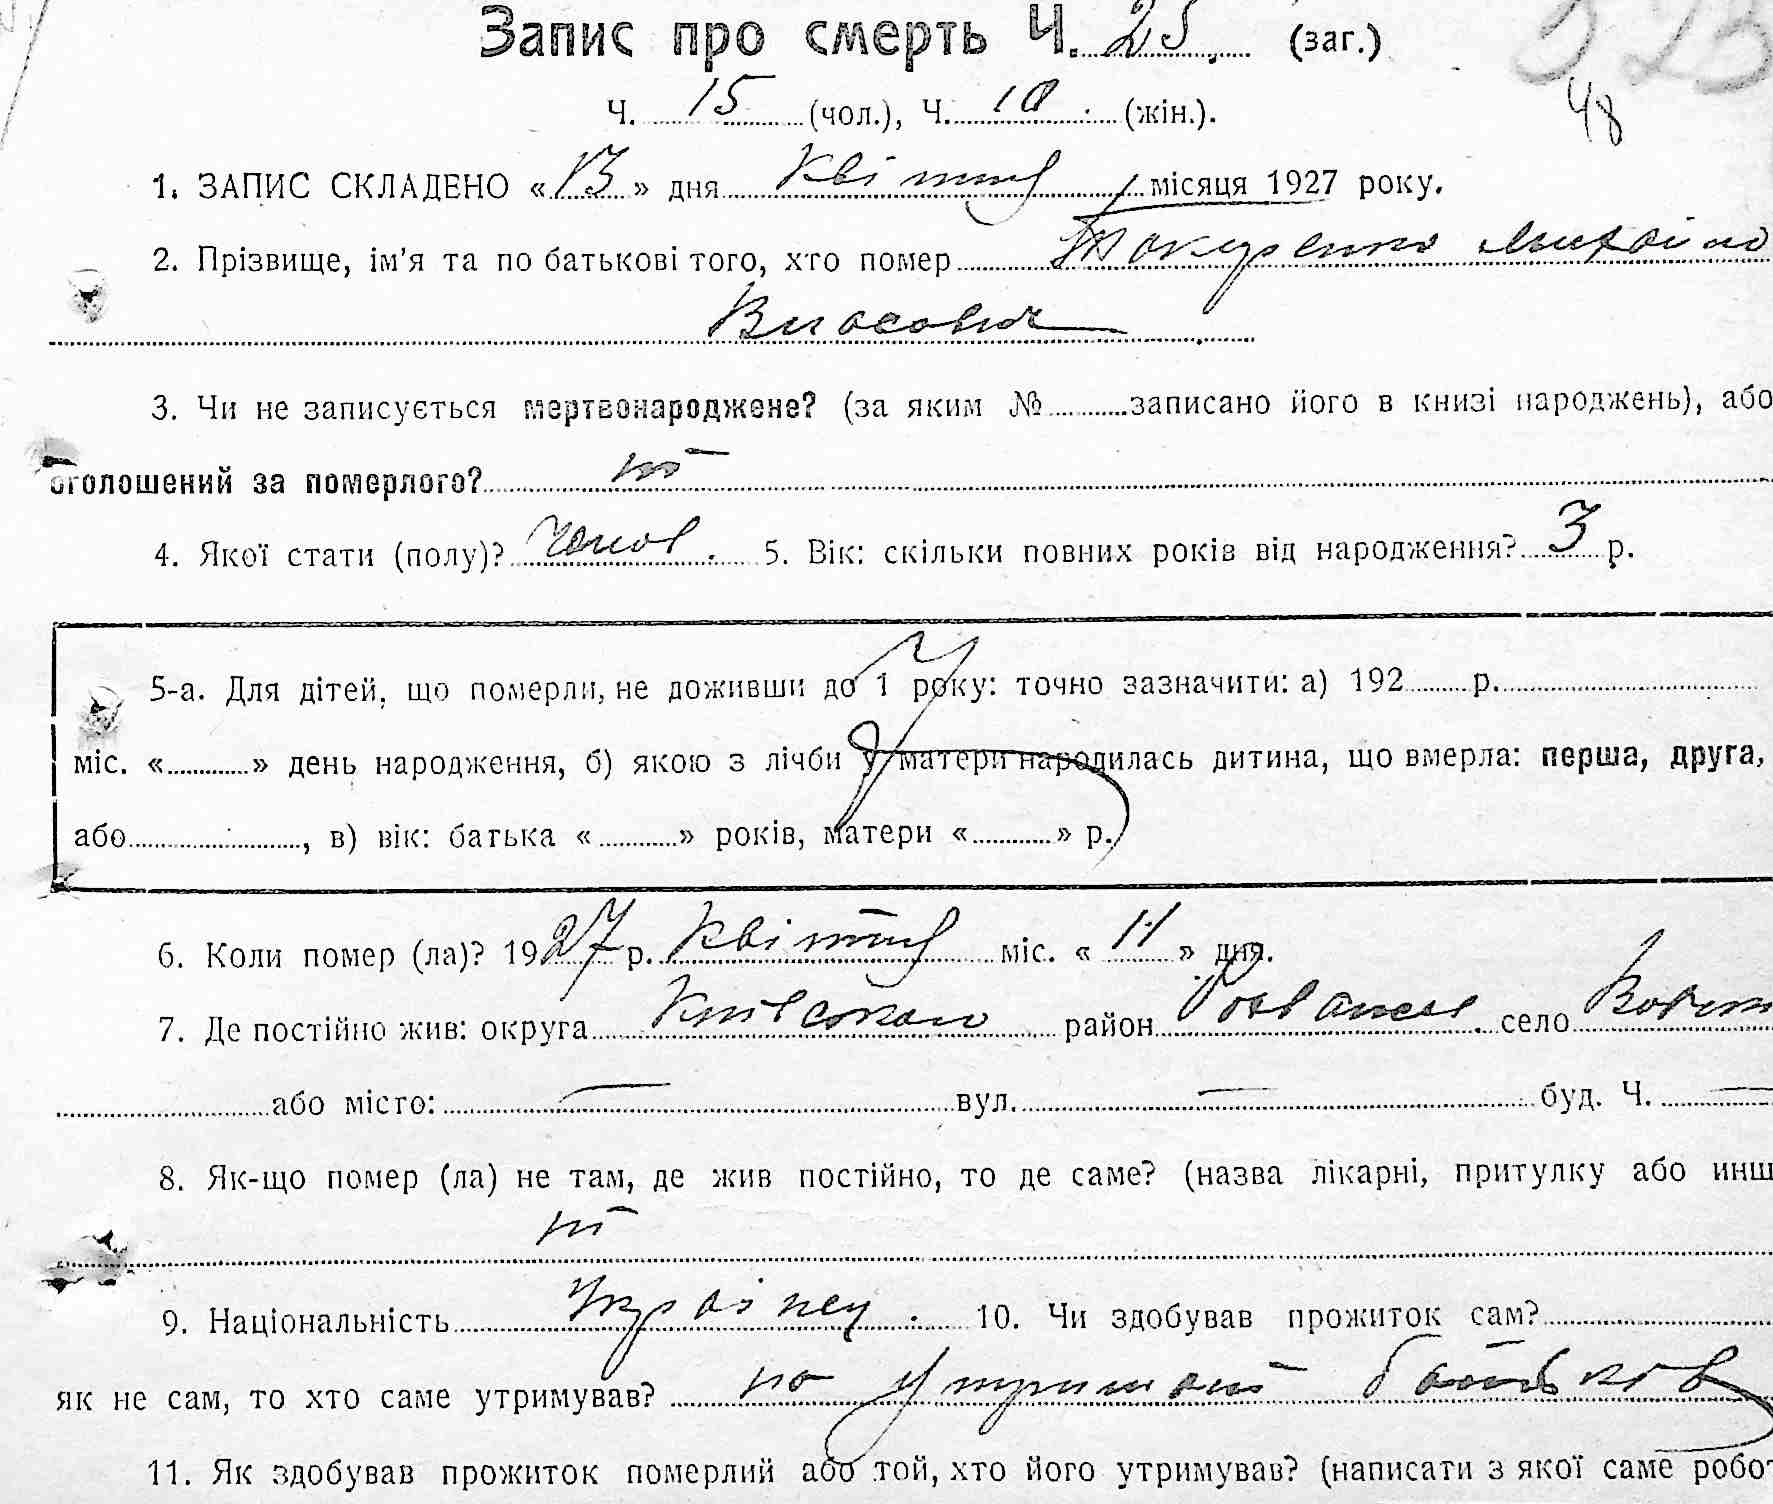 Запис про смерть Ч. 25 (заг.)
Ч. 15 (чол.), Ч. 10 (жін.).
48
1. ЗАПИС СКЛАДЕНО «13» дня квітня місяця 1927 року.
2. Прізвище, ім'я та по батькові того, хто помер Михайло
Власович
3. Чи не записується мертвонароджене? (за яким № записано його в книзі народжень), або
оголошений за померлого? ні
4. Якої стати (полу)? чолов. 5. Вік: скільки повних років від народження? 3 р.
5-а. Для дітей, що померли, не доживши до 1 року: точно зазначити: а) 192 р.
міс. « » день народження, б) якою з лічби у матери народилась дитина, що вмерла: перша, друга,
або , в) вік: батька « » років, матери « » р.
6. Коли помер (ла)? 1927 р. квітня міс. «11» дня.
7. Де постійно жив: округа район село
або місто: — вул. — буд. Ч. —
8. Як-що помер (ла) не там, де жив постійно, то де саме? (назва лікарні, притулку або инш
ні
9. Національність Українец. 10. Чи здобував прожиток сам?
як не сам, то хто саме утримував? на утриман батьків
11. Як здобував прожиток померлий або той, хто його утримував? (написати з якої саме робот